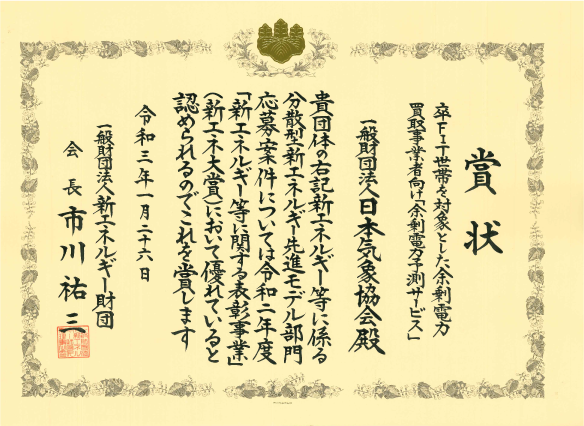 賞状
卒FIT世帯を対象とした余剰電力
買取事業者向け「余剰電力予測サービス」
一般財団法人日本気象協会殿
貴団体の右記新エネルギー等に係る
分散型新エネルギー先進モデル部門
応募案件については令和二年度
「新エネルギー等に関する表彰事業」
（新エネ大賞）において優れていると
認められるのでこれを賞します
令和三年一月二十六日
一般財団法人新エネルギー財団
会長 市川祐三